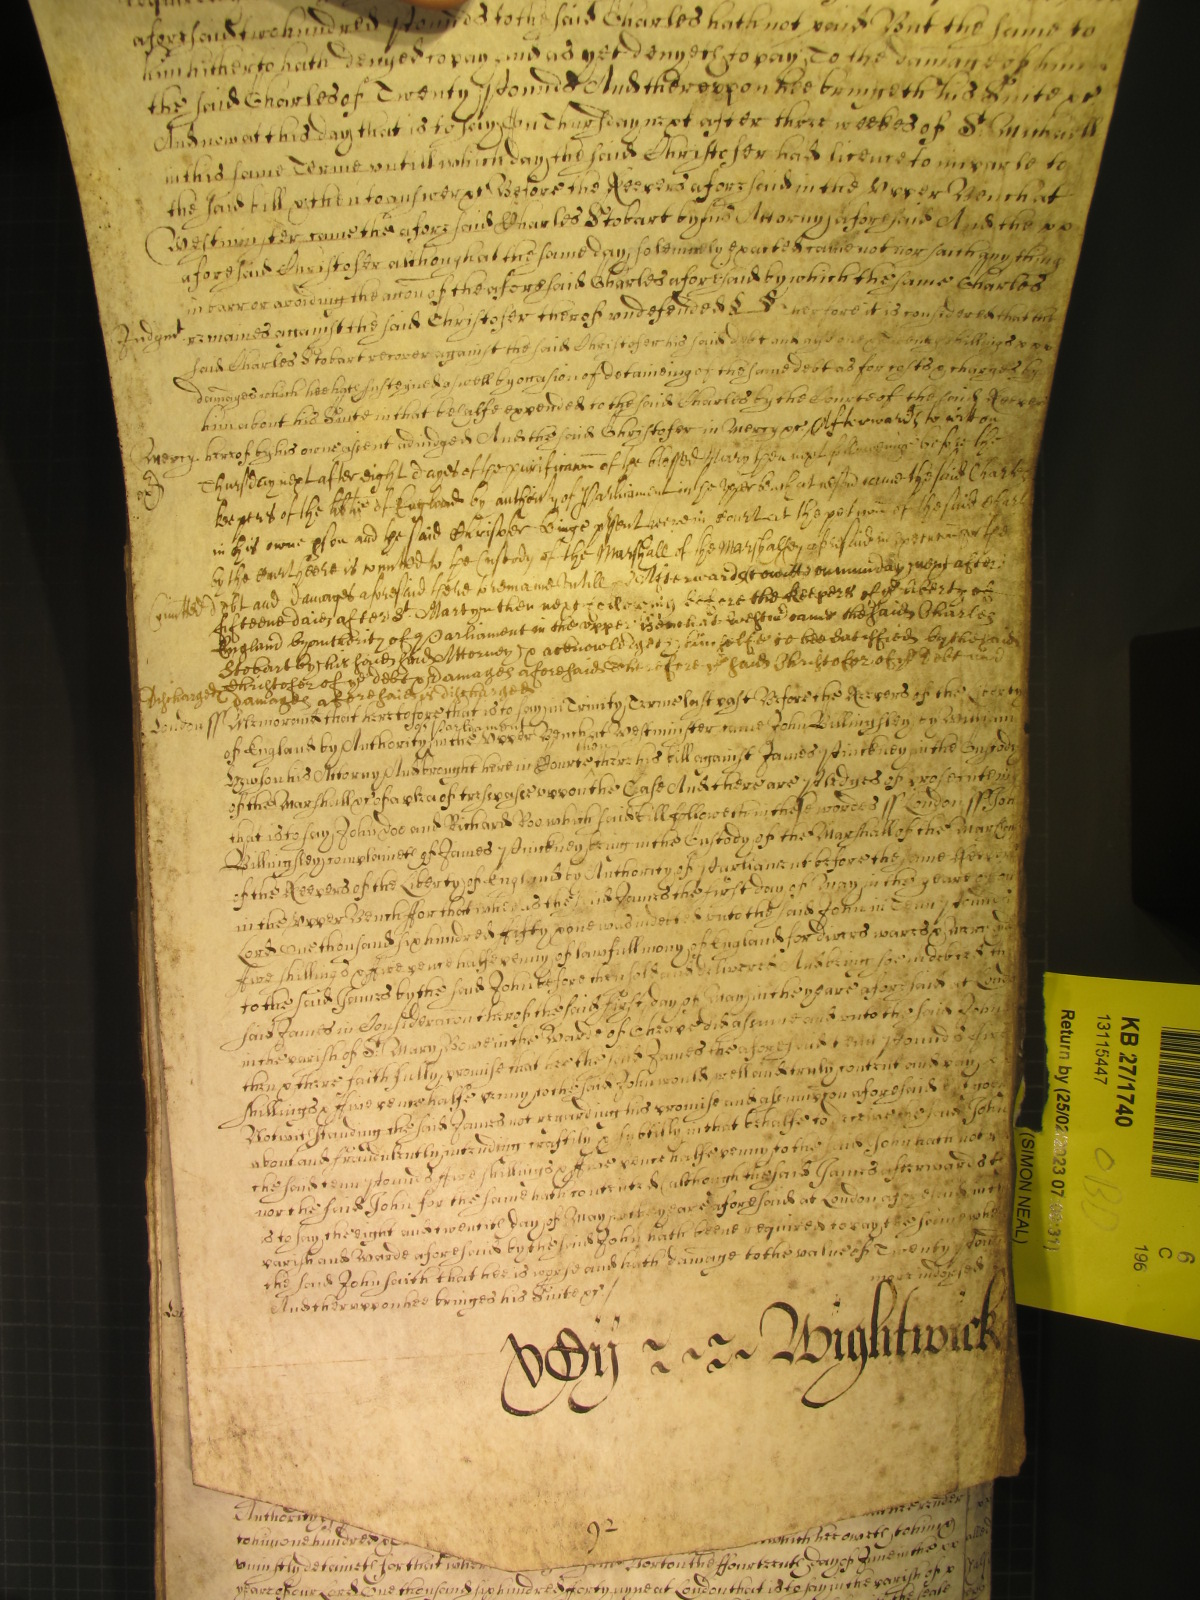 aforesaid two hundred Pounds to the said Charles hath not paid But the same to
him hitherto hath denyed to pay and as yet denyeth to pay To the damage of him
the said Charles of Twenty Pounds And thereupon hee bringeth his Suite &c
And now at this day that is to say On Thursday next after three weekes of St. Michaell
in this same Terme untill which day the said Christofer had licence to imparle to
the said bill & then to answer &c Before the Keepers aforesaid in the Upper Bench at
Westminster came the aforesaid Charles Stobart by his Attorny aforesaid And the
aforesaid Christofer although at the same day solemnely exacted came not nor saith any thing
in barr or avoiding the accon of the aforesaid Charles aforesaid by which the same Charles
Judgmt remaines against the said Christofer therof undefended § § Therefore it is considered that the
said Charles Stobart recover against the said Christofer his said debt and
damages which hee hath susteyned aswell by occasion of deteineing of the same debt as for costs & charges by
him about his Suite in that behalfe expended to the said Charles by the Courte of the said Keepers
Mercy. heere by his owne assent adiudged And the said Christofer in Mercy &c Afterwards to witt on
Thursday next after eight dayes of the purificacon of the blessed Mary then next followeinge before the
keepers of the libtie of England by authority of Parliament in the upper bench at westm came the said Charles
in his owne pson and the said Christofer beinge psent heere in Court at the peticon of the said Charles
by the Court heere is comitted to the Custody of the Marshall of the Marshalsey aforesaid in
Comitted debt and damages aforesaid there to remaine untill &c Afterwards to witt on munday next after
fifteene daies after St. Martyn then next following before the Keepers of ye liberty of
England by authority of Parliament in the upper bench at westm came the said Charles
Stobart by his said Attorney & acknowledgeth himselfe to bee satisfied by the said
Christofer of ye debt & damages aforesaid Therefore ye said Christofer of ye debt and
Discharged damages aforesaid is discharged
London ss Memorand that heretofore that is to say in Trinity Terme last past Before the Keepers of the Liberty
of England by Authority of Parliament in the Upper Bench at Westminster came John Billingsley by William
his Attorny And brought here in Courte then there his bill against James Pinckney in the Custody
of the Marshall &c of a plea of trespasse uppon the Case And there are Pledges of prosecuteing
that is to say John Doe and Richard Roe which said bill followeth in these wordes ss London ss John
Billingsley complaineth of James Pinckney being in the Custody of the Marshall of the Marshalsey
of the Keepers of the Liberty of England by Authority of Parliament before the same Keepers
in the Upper Bench ffor that whereas the said James the first day of May in the yeare of our
Lord One thousand six hundred fifty & one was indebted unto the said John in Tenn Pounds
ffive shillings & ffive pence halfe penny of lawfull mony of England for divers wares & merchandizes
to the said James by the said John before then sold and delivered And being soe indebted the
said James in Consideracon therof the said first day of May in the yeare aforesaid at London
in the parish of St. Mary Bowe in the Warde of Cheape did assume and unto the said John
then & there faithfully promise that hee the said James the aforesaid tenn Pounds five
shillings & ffive pence halfe penny to the said John would well and truly content and pay
Notwithstanding the said James not regarding his promise and assumpcon aforesaid but
about and fraudulently intending craftily & subtilly in that behalfe to deceive the said John
the said tenn Pounds ffive shillings & ffive pence halfe penny to the said John hath not
nor the said John for the same hath contented (although the said James afterwards that
is to say the eight and twentieth day of May in the yeare aforesaid at London aforesaid in the
parish and Warde aforesaid by the said John hath beene required to pay the same) whereupon
the said John saith that hee is worse and hath damage to the value of Twenty Pounds
And therupon hee bringes his Suite &c./
more indorsed
Wightwick
92
Authority
to him one hundred
uniustly deteineth for that
on the ffourteenth day of June in the
yeare of our Lord One thousand six hundred fforty nyne at London that is to say in the parish of
KB 27/1740
13115447
Return by (25/02/2023 07
(SIMON NEAL)
6
C
196